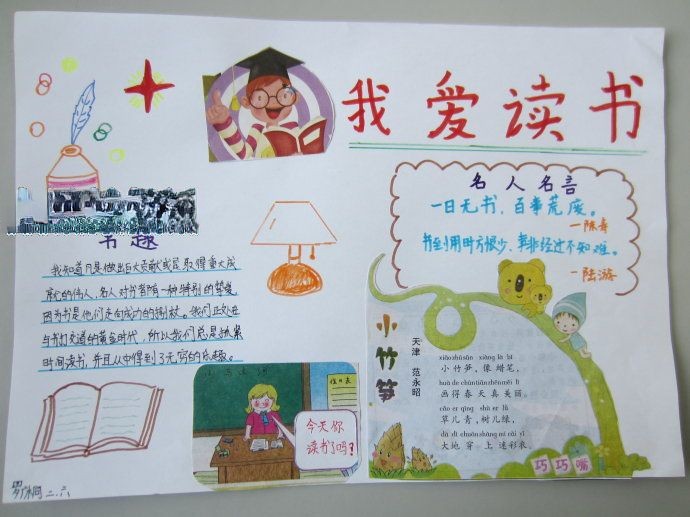 我爱读书
名人名言
一日无书，百事荒废。
—陈寿
书到用时方恨少、事非经过不知难。
—陆游
书趣
我知道凡是做出巨大贡献或是取得重大成
就的伟人，名人对书都有一种特别的挚爱
因为书是他们走向成功的拐杖。我们正处在
与书打交道的黄金时代，所以我们总是抓紧
时间读书，并且从中得到了无穷的乐趣。
今天你
读书了吗？
小竹笋
天津 范永昭
xiǎo zhú sǔn xiàng là bǐ
小竹笋，像蜡笔，
huà de chūn tiān zhēn měi lì
画得春天真美丽。
cǎo er qīng shù er lǜ
草儿青，树儿绿，
dà dì chuān shàng mí cǎi yī
大地穿上迷彩衣。
巧巧嘴
二.六